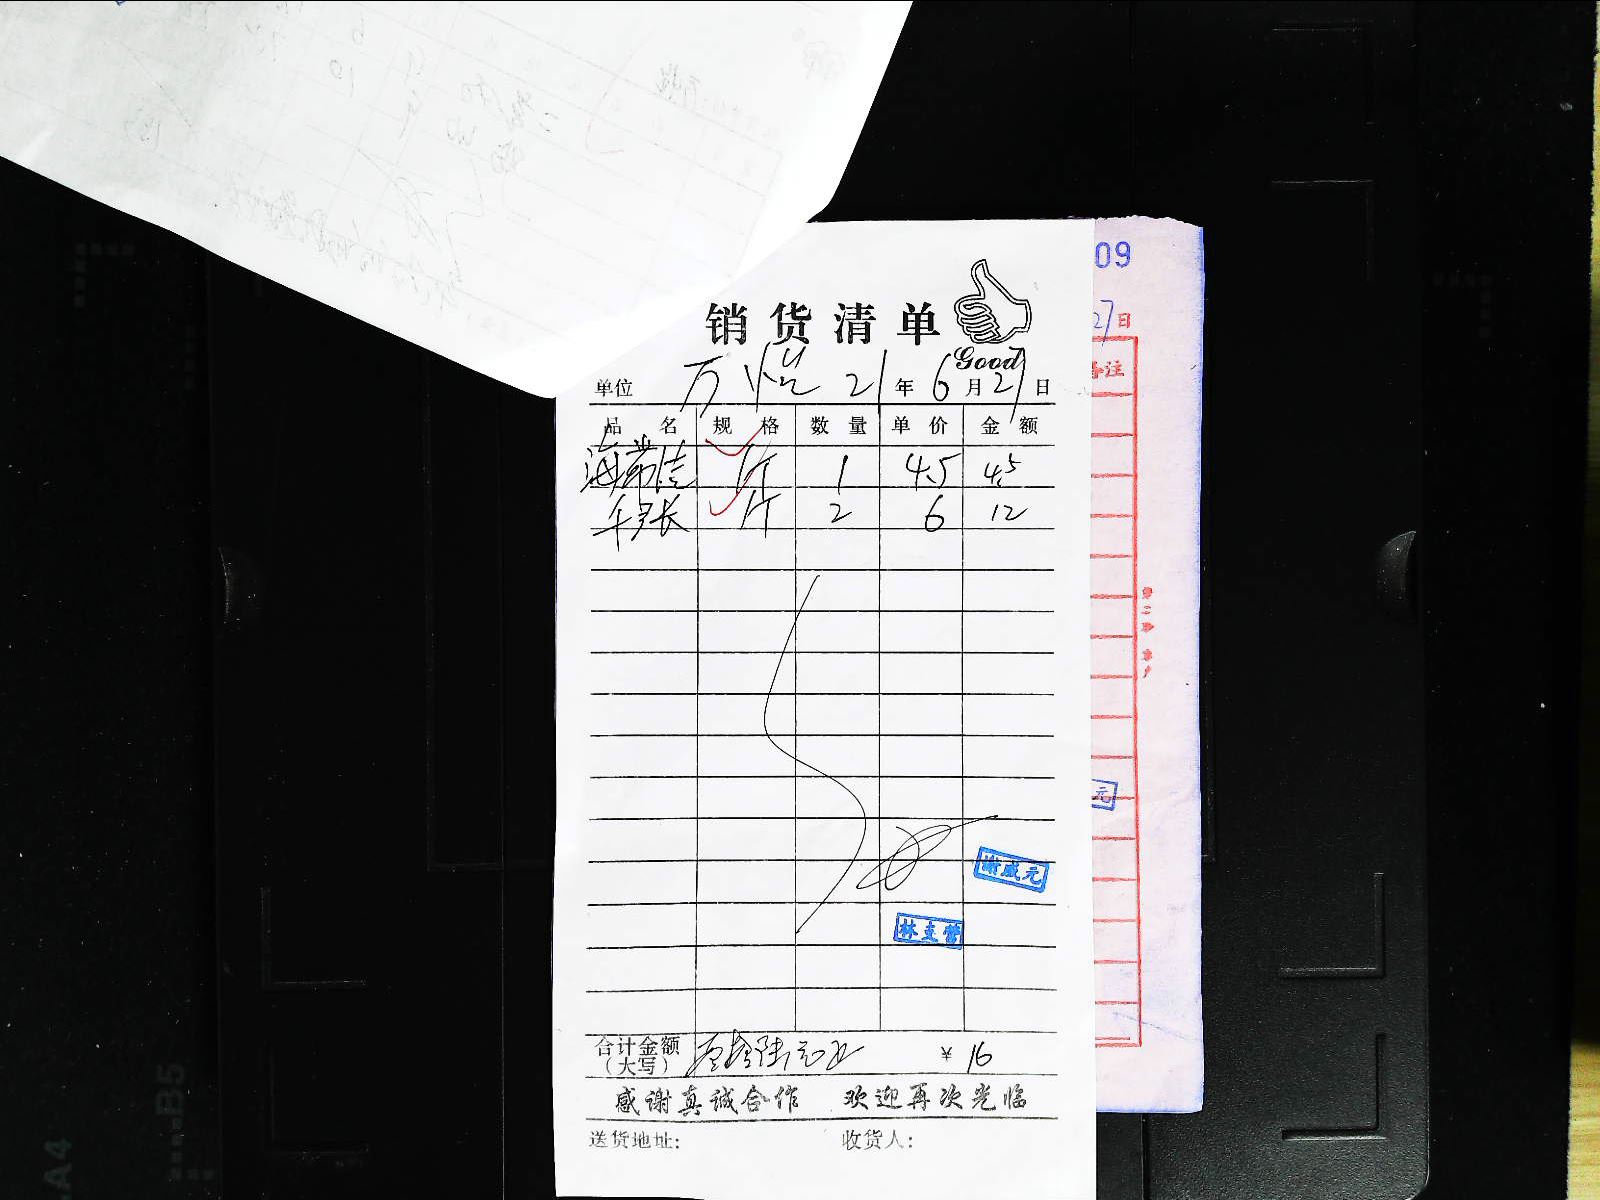 09
销货清单
Good
27日
单位 万悦 21年6月27日
备注
品名 规格 数量 单价 金额
海带结 斤 1 4.5 4.5
千张 斤 2 6 12
第二联 客户
元
谢成元
林支营
合计金额(大写) 壹拾陆元正 ¥ 16
感谢真诚合作 欢迎再次光临
送货地址: 收货人:
B5
A4